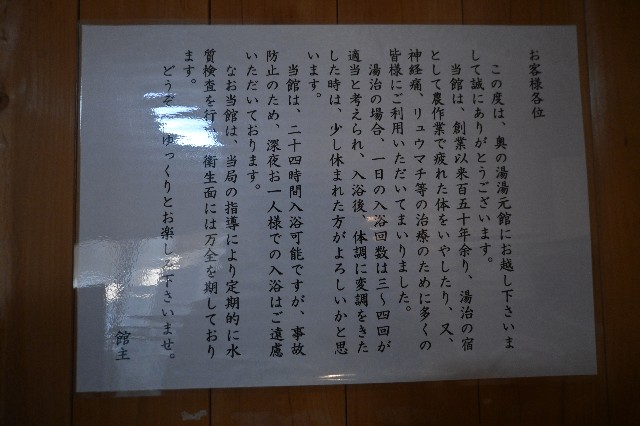 お客様各位
この度は、奥の湯湯元館にお越し下さいま
して誠にありがとうございます。
当館は、創業以来百五十年余り、湯治の宿
として農作業で疲れた体をいやしたり、又、
神経痛、リュウマチ等の治療のために多くの
皆様にご利用いただいてまいりました。
湯治の場合、一日の入浴回数は三〜四回が
適当と考えられ、入浴後、体調に変調をきた
した時は、少し休まれた方がよろしいかと思
います。
当館は、二十四時間入浴可能ですが、事故
防止のため、深夜お一人様での入浴はご遠慮
いただいております。
なお当館は、当局の指導により定期的に水
質検査を行い、衛生面には万全を期しており
ます。
どうぞ、ゆっくりとお楽しみ下さいませ。
館主